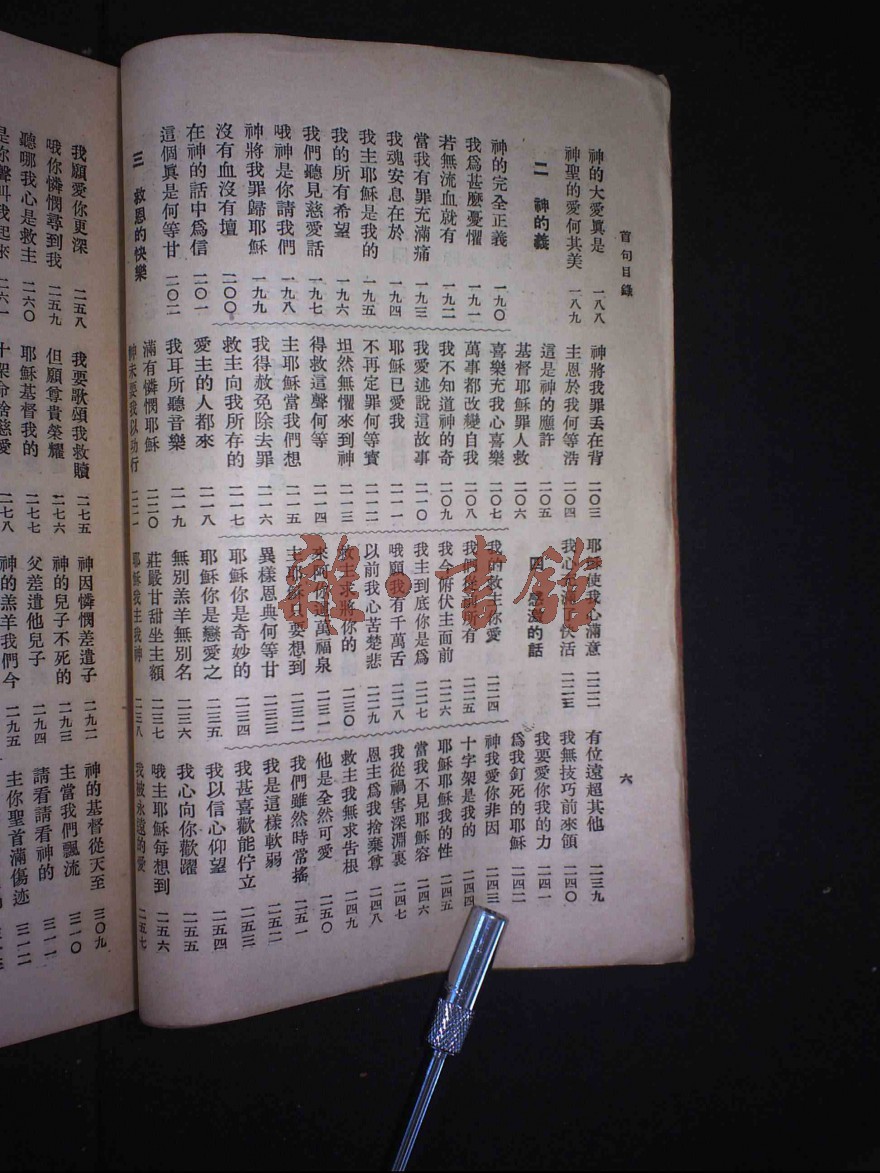 首句目錄
六
神的大愛眞是 一八八
神聖的愛何其美 一八九
二 神的義
神的完全正義 一九〇
我爲甚麼憂懼 一九一
若無流血就有 一九二
當我有罪充滿痛 一九三
我魂安息在於 一九四
我主耶穌是我的 一九五
我的所有希望 一九六
我們聽見慈愛話 一九七
哦神是你請我們 一九八
神將我罪歸耶穌 一九九
沒有血沒有壇 二〇〇
在神的話中爲信 二〇一
這個眞是何等甘 二〇二
三 救恩的快樂
神將我罪丟在背 二〇三
主恩於我何等浩 二〇四
這是神的應許 二〇五
基督耶穌罪人救 二〇六
喜樂充我心喜樂 二〇七
萬事都改變自我 二〇八
我不知道神的奇 二〇九
我愛述說這故事 二一〇
耶穌已愛我 二一一
不再定罪何等寳 二一二
坦然無懼來到神 二一三
得救這聲何等 二一四
主耶穌當我們想 二一五
我得赦免除去罪 二一六
救主向我所存的 二一七
愛主的人都來 二一八
我耳所聽音樂 二一九
滿有憐憫耶穌 二二〇
神未要我以功行 二二一
耶穌使我心滿意 二二二
我心充滿了快活 二二三
四 感激的話
我的救主你愛 二二四
我們從前所有 二二五
我今俯伏主面前 二二六
我主到底你是爲 二二七
哦願我有千萬舌 二二八
以前我心苦楚悲 二二九
救主求將你的 二三〇
來阿你這萬福泉 二三一
主耶穌只要想到 二三二
異樣恩典何等甘 二三三
耶穌你是奇妙的 二三四
耶穌你是戀愛之 二三五
無別羔羊無別名 二三六
莊嚴甘甜坐主額 二三七
耶穌我主我神 二三八
有位遠超其他 二三九
我無技巧前來頌 二四〇
我要愛你我的力 二四一
爲我釘死的耶穌 二四二
神我愛你非因 二四三
十字架是我的 二四四
耶穌耶穌我的性 二四五
當我不見耶穌容 二四六
我從禍害深淵裏 二四七
恩主爲我捨棄尊 二四八
救主我無求告根 二四九
他是全然可愛 二五〇
我們雖然時常搖 二五一
我是這樣軟弱 二五二
我甚喜歡能佇立 二五三
我以信心仰望 二五四
我心向你歡躍 二五五
哦主耶穌每想到 二五六
我被永遠的愛 二五七
我願愛你更深 二五八
哦你憐憫尋到我 二五九
聽哪我心是救主 二六〇
是你聲叫我起來 二六一
我要歌頌我救贖 二七五
但願尊貴榮耀 二七六
耶穌基督我的 二七七
十架命捨慈愛 二七八
神因憐憫差遣子 二九二
神的兒子不死的 二九三
父差遣他兒子 二九四
神的羔羊我們今 二九五
神的基督從天至 三〇九
主當我們飄流 三一〇
請看請看神的 三一一
主你聖首滿傷迹 三一二
雅·書館